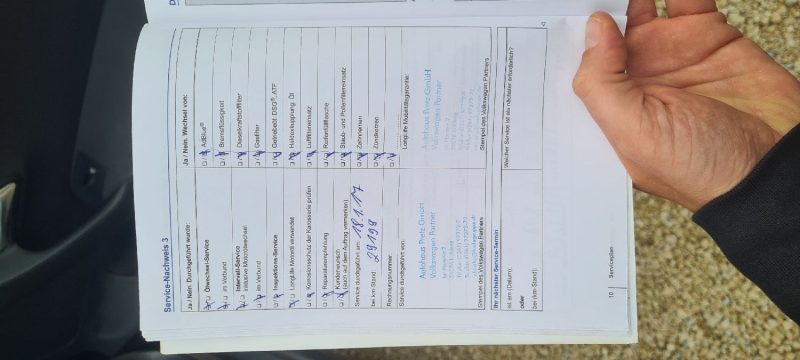 Service-Nachweis 3
Ja / Nein Durchgeführt wurde:
Ölwechsel-Service
im Verbund
Intervall-Service
inklusive Motorölwechsel
im Verbund
Inspektions-Service
LongLife Motoröl verwendet
Korrosionsschutz der Karosserie prüfen
Reparaturempfehlung
Kundenwunsch
(auch auf dem Auftrag vermerken)
Service durchgeführt am: 18.1.17
bei km-Stand: 29199
Rechnungsnummer:
Service durchgeführt von:
Autohaus Pretz GmbH
Volkswagen Partner
Stempel des Volkswagen Partners
Ja / Nein Wechsel von:
AdBlue®
Bremsflüssigkeit
Dieselkraftstofffilter
Gasfilter
Getriebeöl: DSG®, ATF
Haldexkupplung: Öl
Luftfiltereinsatz
Reifenfüllflasche
Staub- und Pollenfiltereinsatz
Zahnriemen
Zündkerzen
LongLife Mobilitätsgarantie:
Autohaus Pretz GmbH
Volkswagen Partner
Stempel des Volkswagen Partners
Ihr nächster Service-Termin
ist am (Datum):
oder
bei (km-Stand):
Welcher Service ist als nächster erforderlich?
10
Serviceplan